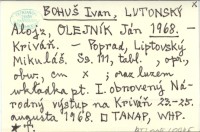 BOHUŠ Ivan, LUTONSKÝ
Alojz, OLEJNÍK Ján 1968. -
Kriváň. - Poprad, Liptovský
Mikuláš. Ss. 111, tabl., opi.,
obw., cm x ; oraz luzem
wkładka pt. I. obnovený Ná-
rodný výstup na Kriváň 22.-25.
augusta 1968. TANAP, WHP.
* T.